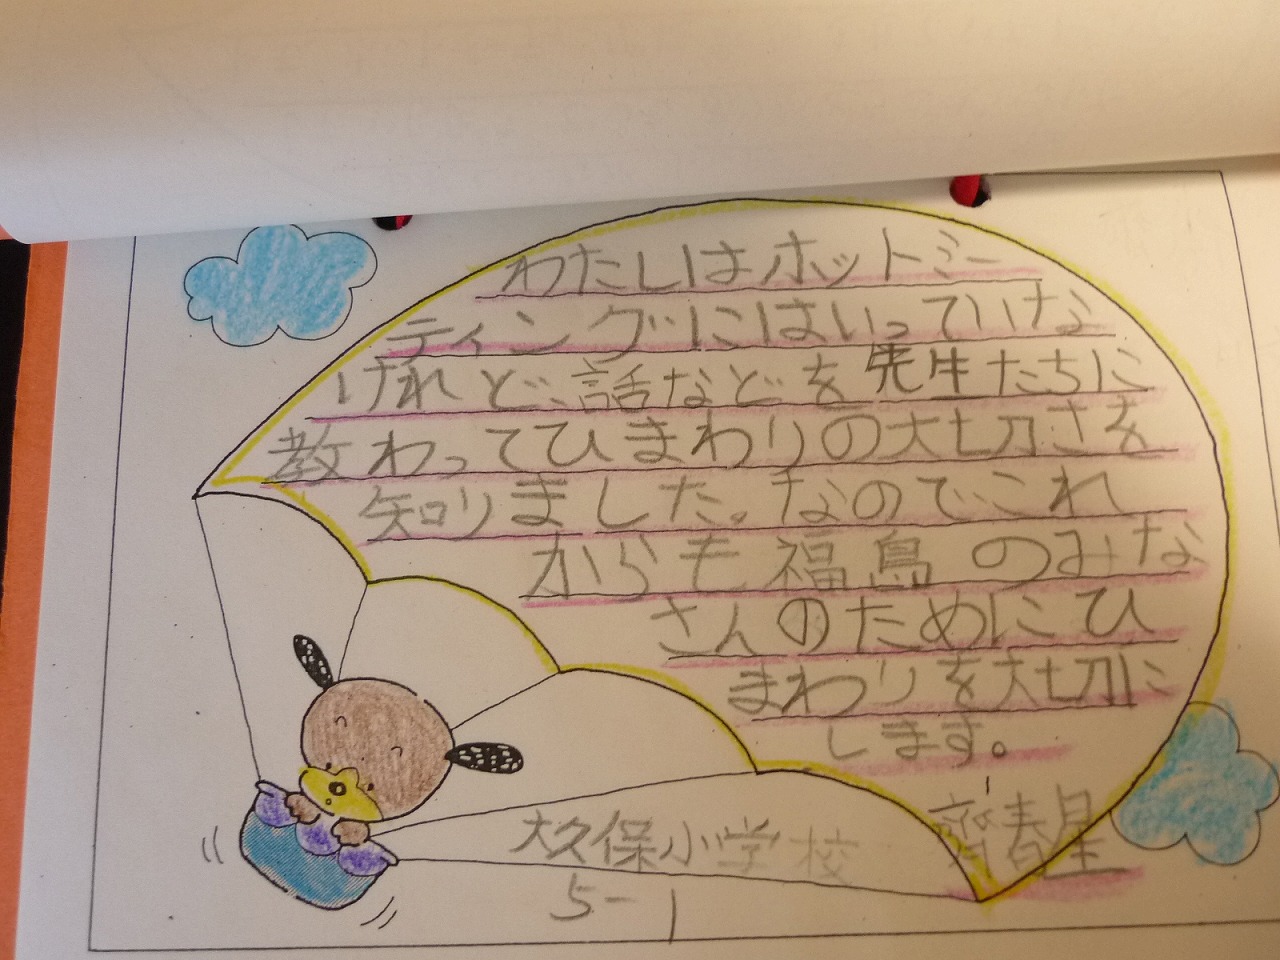 わたしはホットミー
ティングにはいっていな
けれど、話などを先生たちに
教わってひまわりの大切さを
知りました。なのでこれ
からも福島のみな
さんのためにひ
まわりを大切に
します。
大久保小学校 齊春星
5-1